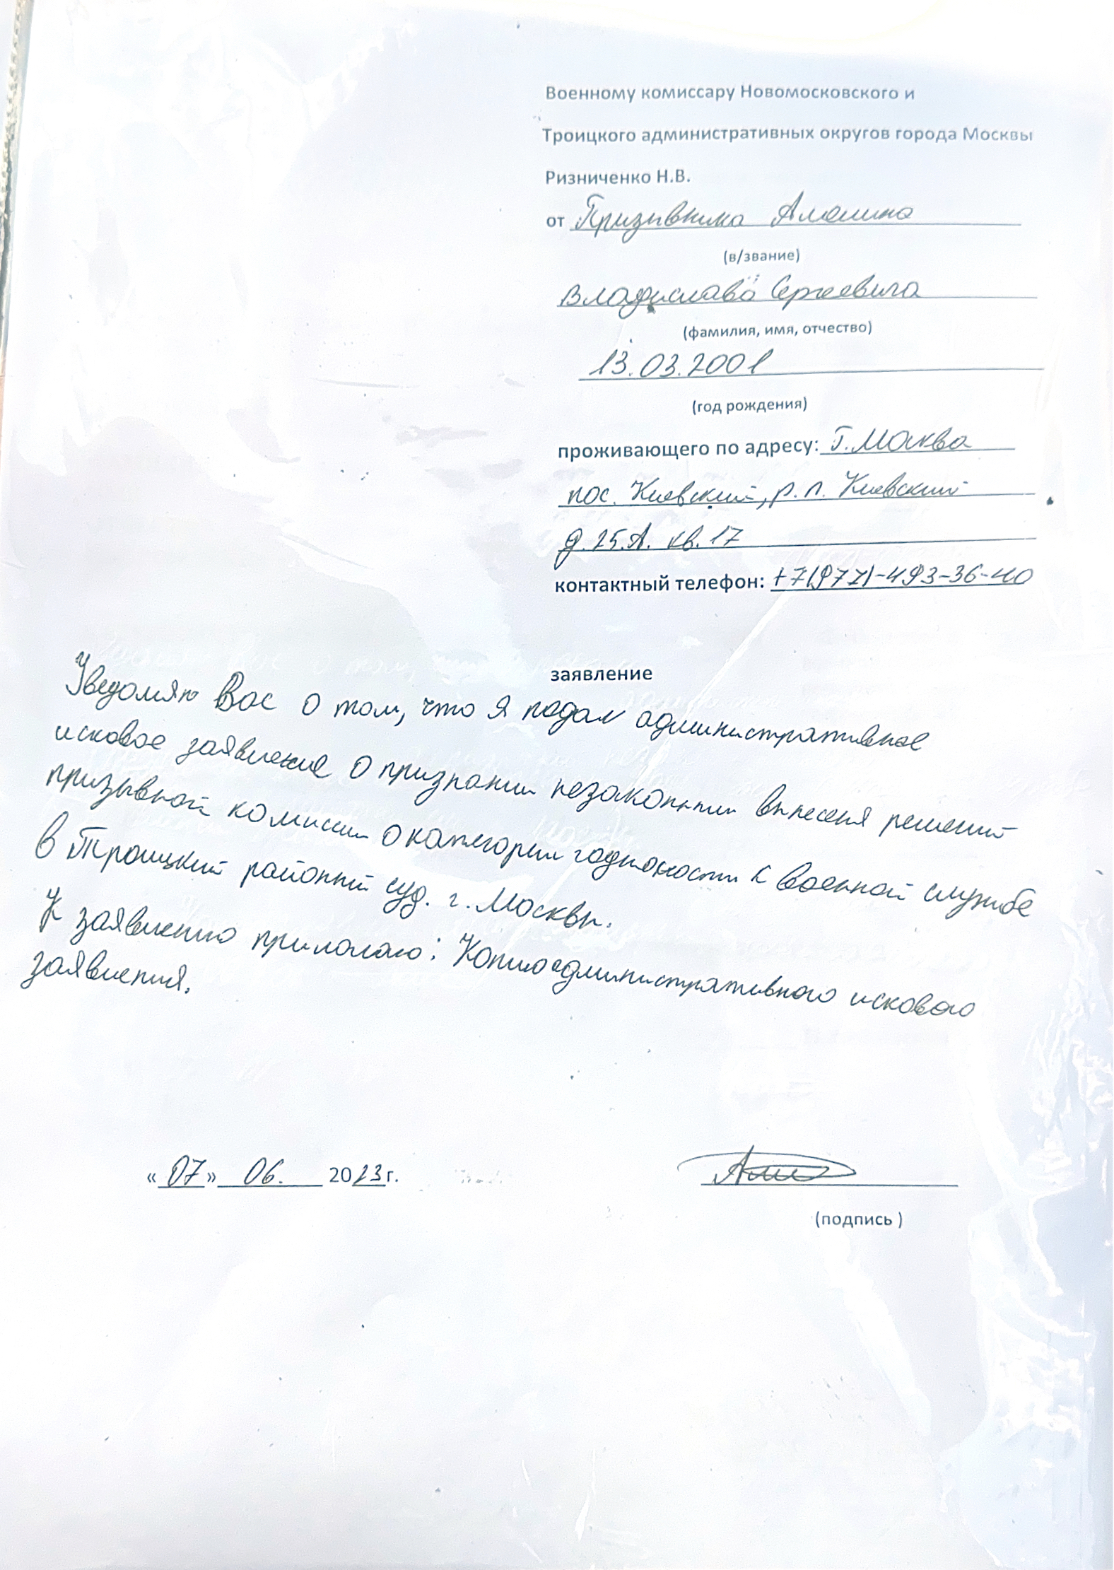 Военному комиссару Новомосковского и
Троицкого административных округов города Москвы
Ризниченко Н.В.
от Призывника Аланина
(в/звание)
Владислава Сергеевича
(фамилия, имя, отчество)
13.03.2001
(год рождения)
проживающего по адресу: г. Москва
пос. Киевский, р.п. Киевский
д. 25.А. кв. 17
контактный телефон: +7(977)-493-36-40
заявление
Уведомляю Вас о том, что я подал административное
исковое заявление о признании незаконным вынесеня решений
призывной комиссии о категории годности к военной службе
в Троицкий районный суд. г. Москвы.
К заявлению прилогаю: Копию административного искового
заявления.
«07» 06. 2023г.
(подпись )